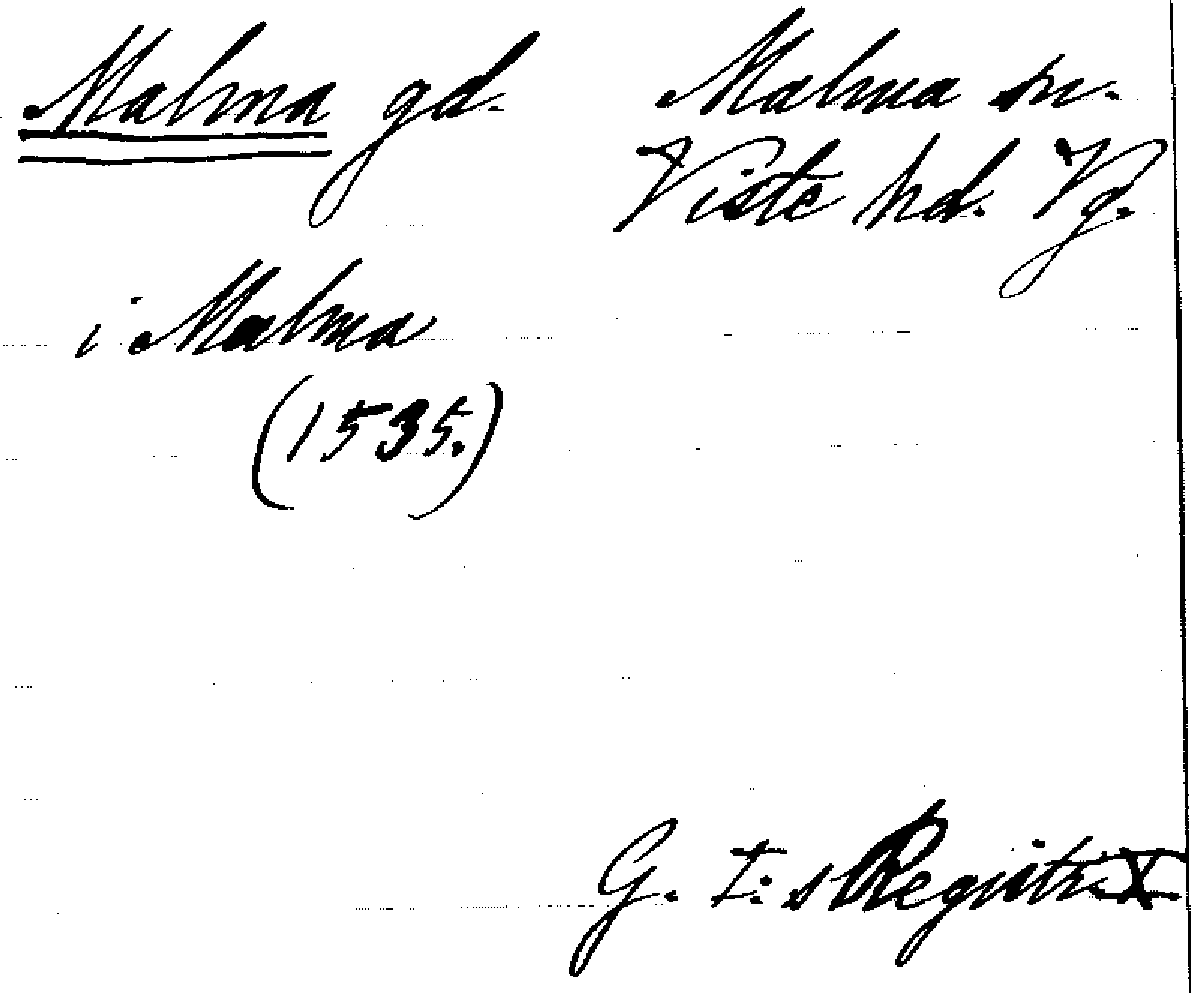 Malma gd. Malma sn.
Viste hd. Vg.
i Malma
(1535.)
G. I:s Registr. X